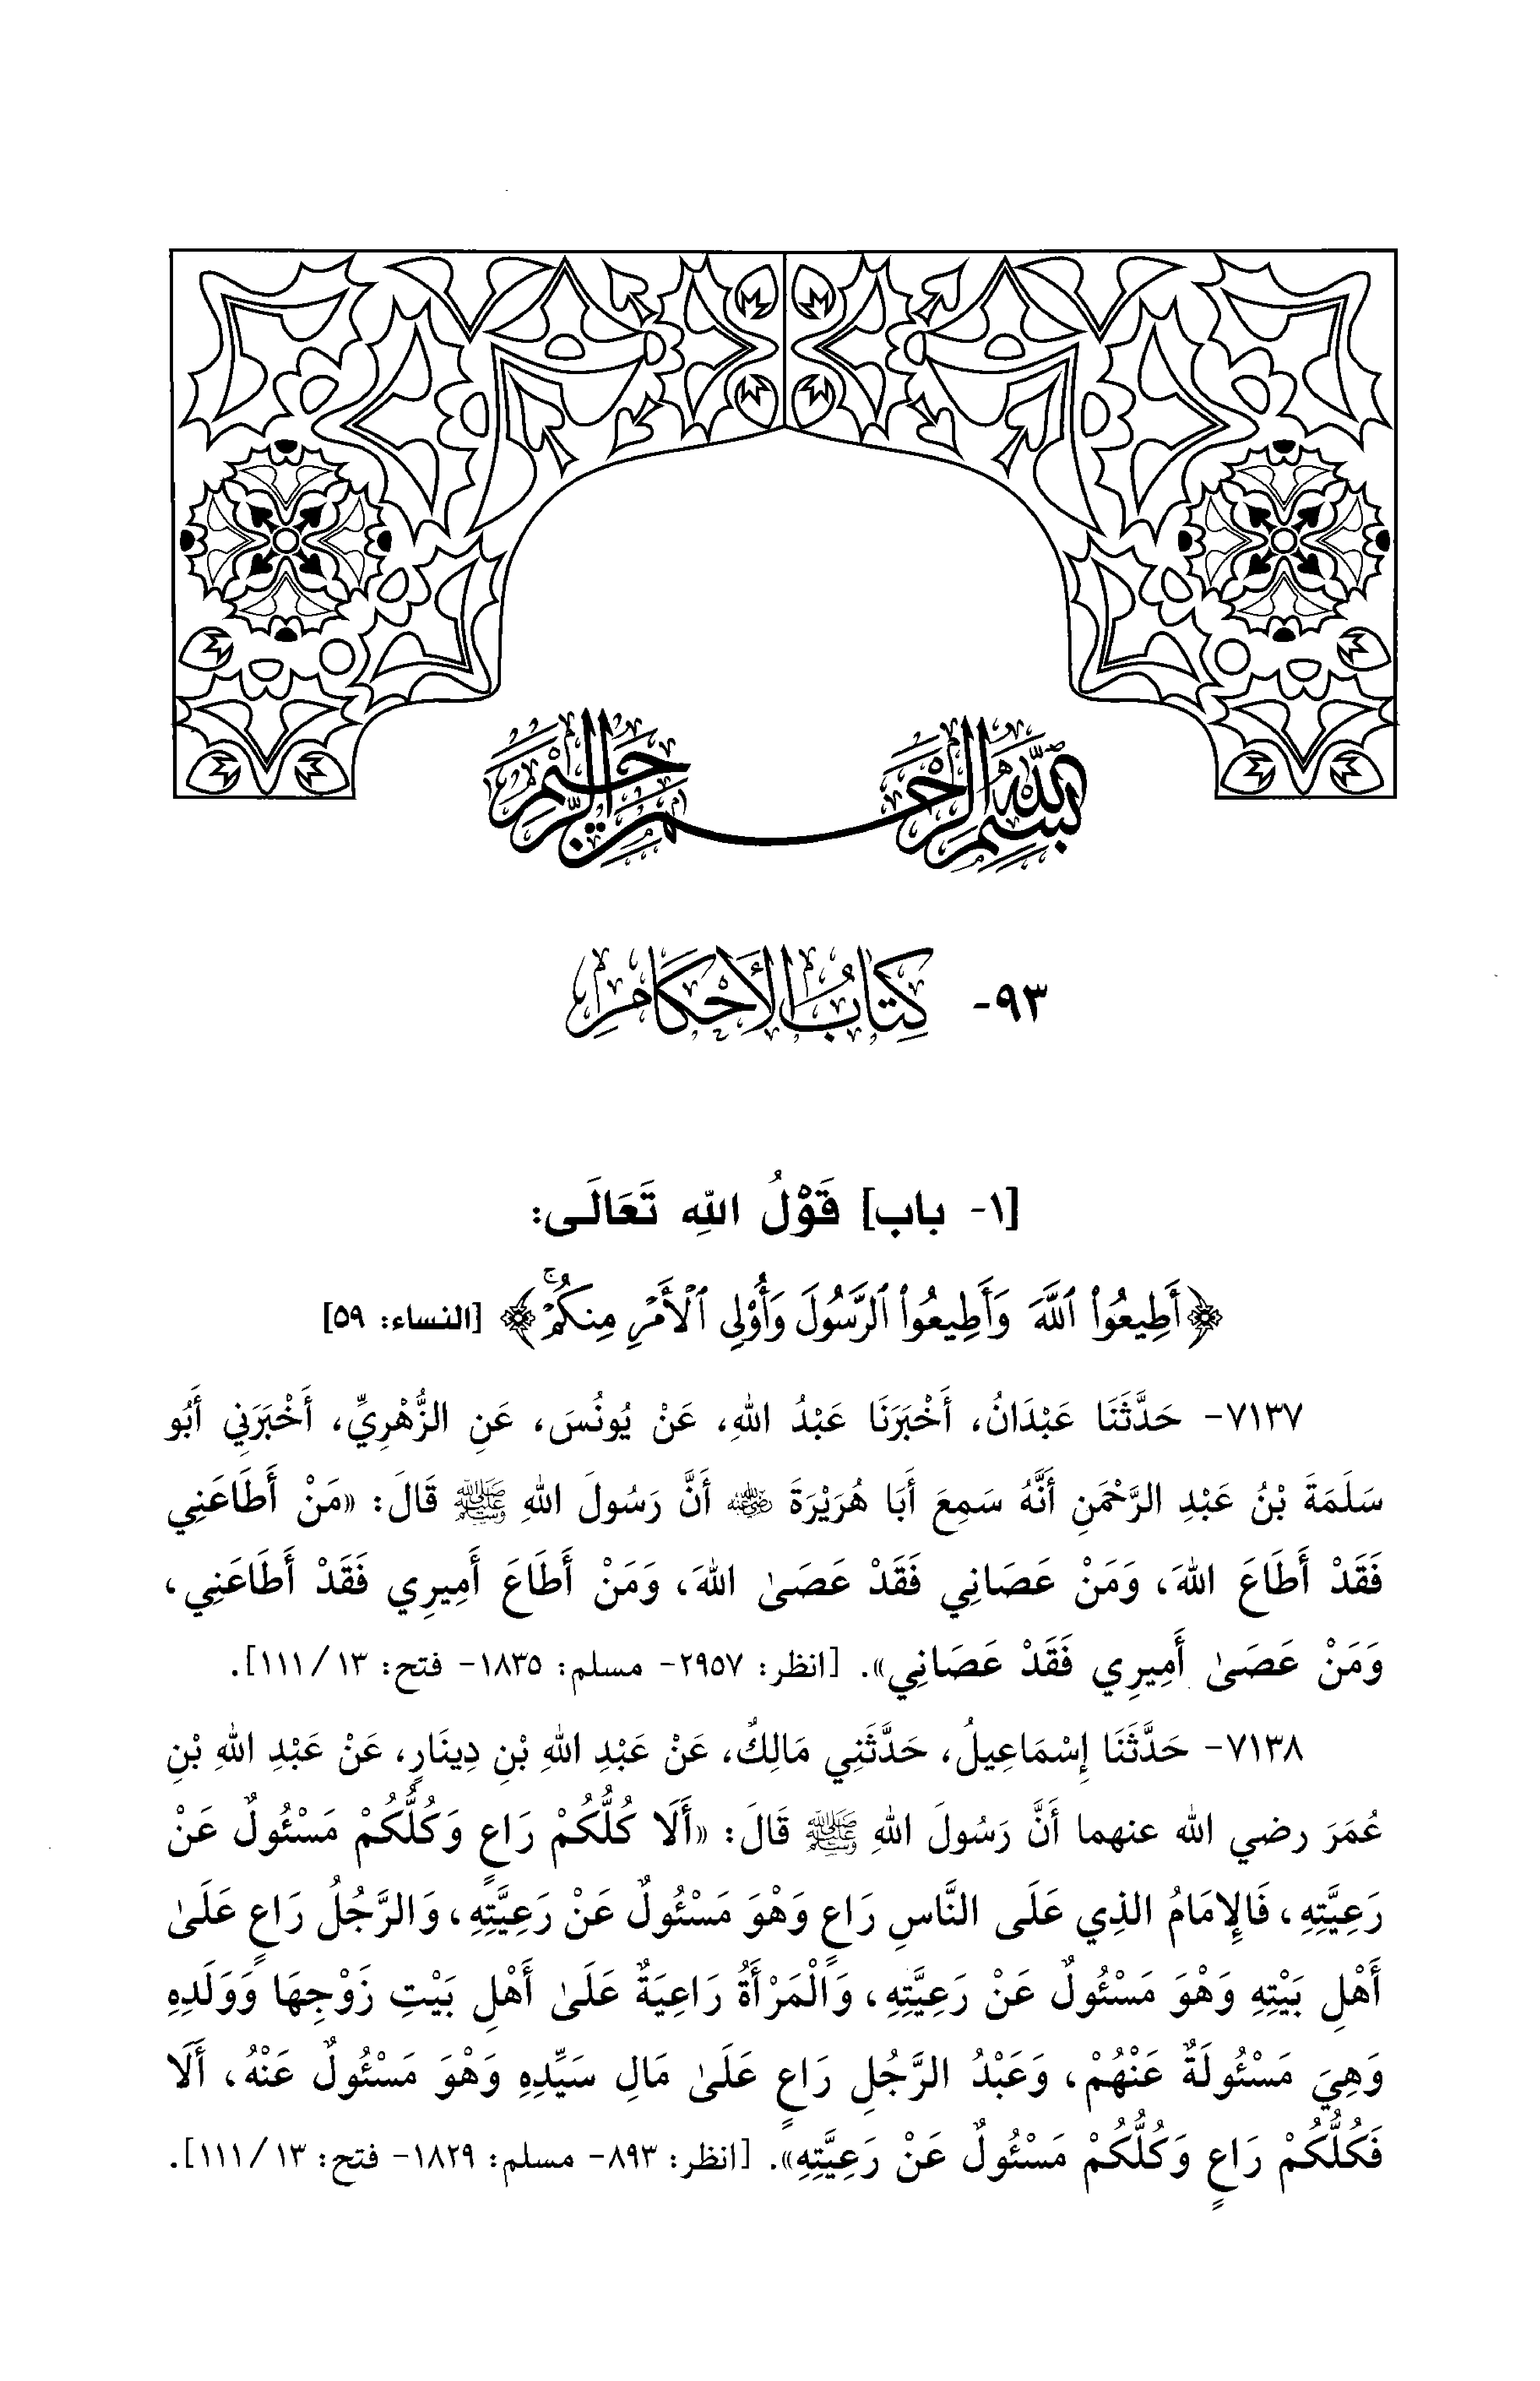 بسم الله الرحمن الرحيم
٩٣- كِتَابُ الأَحْكَامِ
[١- باب] قَوْلُ اللهِ تَعَالَى:
﴿أَطِيعُوا۟ ٱللَّهَ وَأَطِيعُوا۟ ٱلرَّسُولَ وَأُو۟لِى ٱلْأَمْرِ مِنكُمْۖ﴾ [النساء: ٥٩]
٧١٣٧- حَدَّثَنَا عَبْدَانُ، أَخْبَرَنَا عَبْدُ اللهِ، عَنْ يُونُسَ، عَنِ الزُّهْرِيِّ، أَخْبَرَنِي أَبُو
سَلَمَةَ بْنُ عَبْدِ الرَّحْمَنِ أَنَّهُ سَمِعَ أَبَا هُرَيْرَةَ رضي الله عنه أَنَّ رَسُولَ اللهِ ﷺ قَالَ: «مَنْ أَطَاعَنِي
فَقَدْ أَطَاعَ اللهَ، وَمَنْ عَصَانِي فَقَدْ عَصَىٰ اللهَ، وَمَنْ أَطَاعَ أَمِيرِي فَقَدْ أَطَاعَنِي،
وَمَنْ عَصَىٰ أَمِيرِي فَقَدْ عَصَانِي». [انظر: ٢٩٥٧- مسلم: ١٨٣٥- فتح: ١٣/ ١١١].
٧١٣٨- حَدَّثَنَا إِسْمَاعِيلُ، حَدَّثَنِي مَالِكٌ، عَنْ عَبْدِ اللهِ بْنِ دِينَارٍ، عَنْ عَبْدِ اللهِ بْنِ
عُمَرَ رضي الله عنهما أَنَّ رَسُولَ اللهِ ﷺ قَالَ: «أَلَا كُلُّكُمْ رَاعٍ وَكُلُّكُمْ مَسْئُولٌ عَنْ
رَعِيَّتِهِ، فَالإِمَامُ الذِي عَلَى النَّاسِ رَاعٍ وَهْوَ مَسْئُولٌ عَنْ رَعِيَّتِهِ، وَالرَّجُلُ رَاعٍ عَلَىٰ
أَهْلِ بَيْتِهِ وَهْوَ مَسْئُولٌ عَنْ رَعِيَّتِهِ، وَالْمَرْأَةُ رَاعِيَةٌ عَلَىٰ أَهْلِ بَيْتِ زَوْجِهَا وَوَلَدِهِ
وَهِيَ مَسْئُولَةٌ عَنْهُمْ، وَعَبْدُ الرَّجُلِ رَاعٍ عَلَىٰ مَالِ سَيِّدِهِ وَهْوَ مَسْئُولٌ عَنْهُ، أَلَا
فَكُلُّكُمْ رَاعٍ وَكُلُّكُمْ مَسْئُولٌ عَنْ رَعِيَّتِهِ». [انظر: ٨٩٣- مسلم: ١٨٢٩- فتح: ١٣/ ١١١].